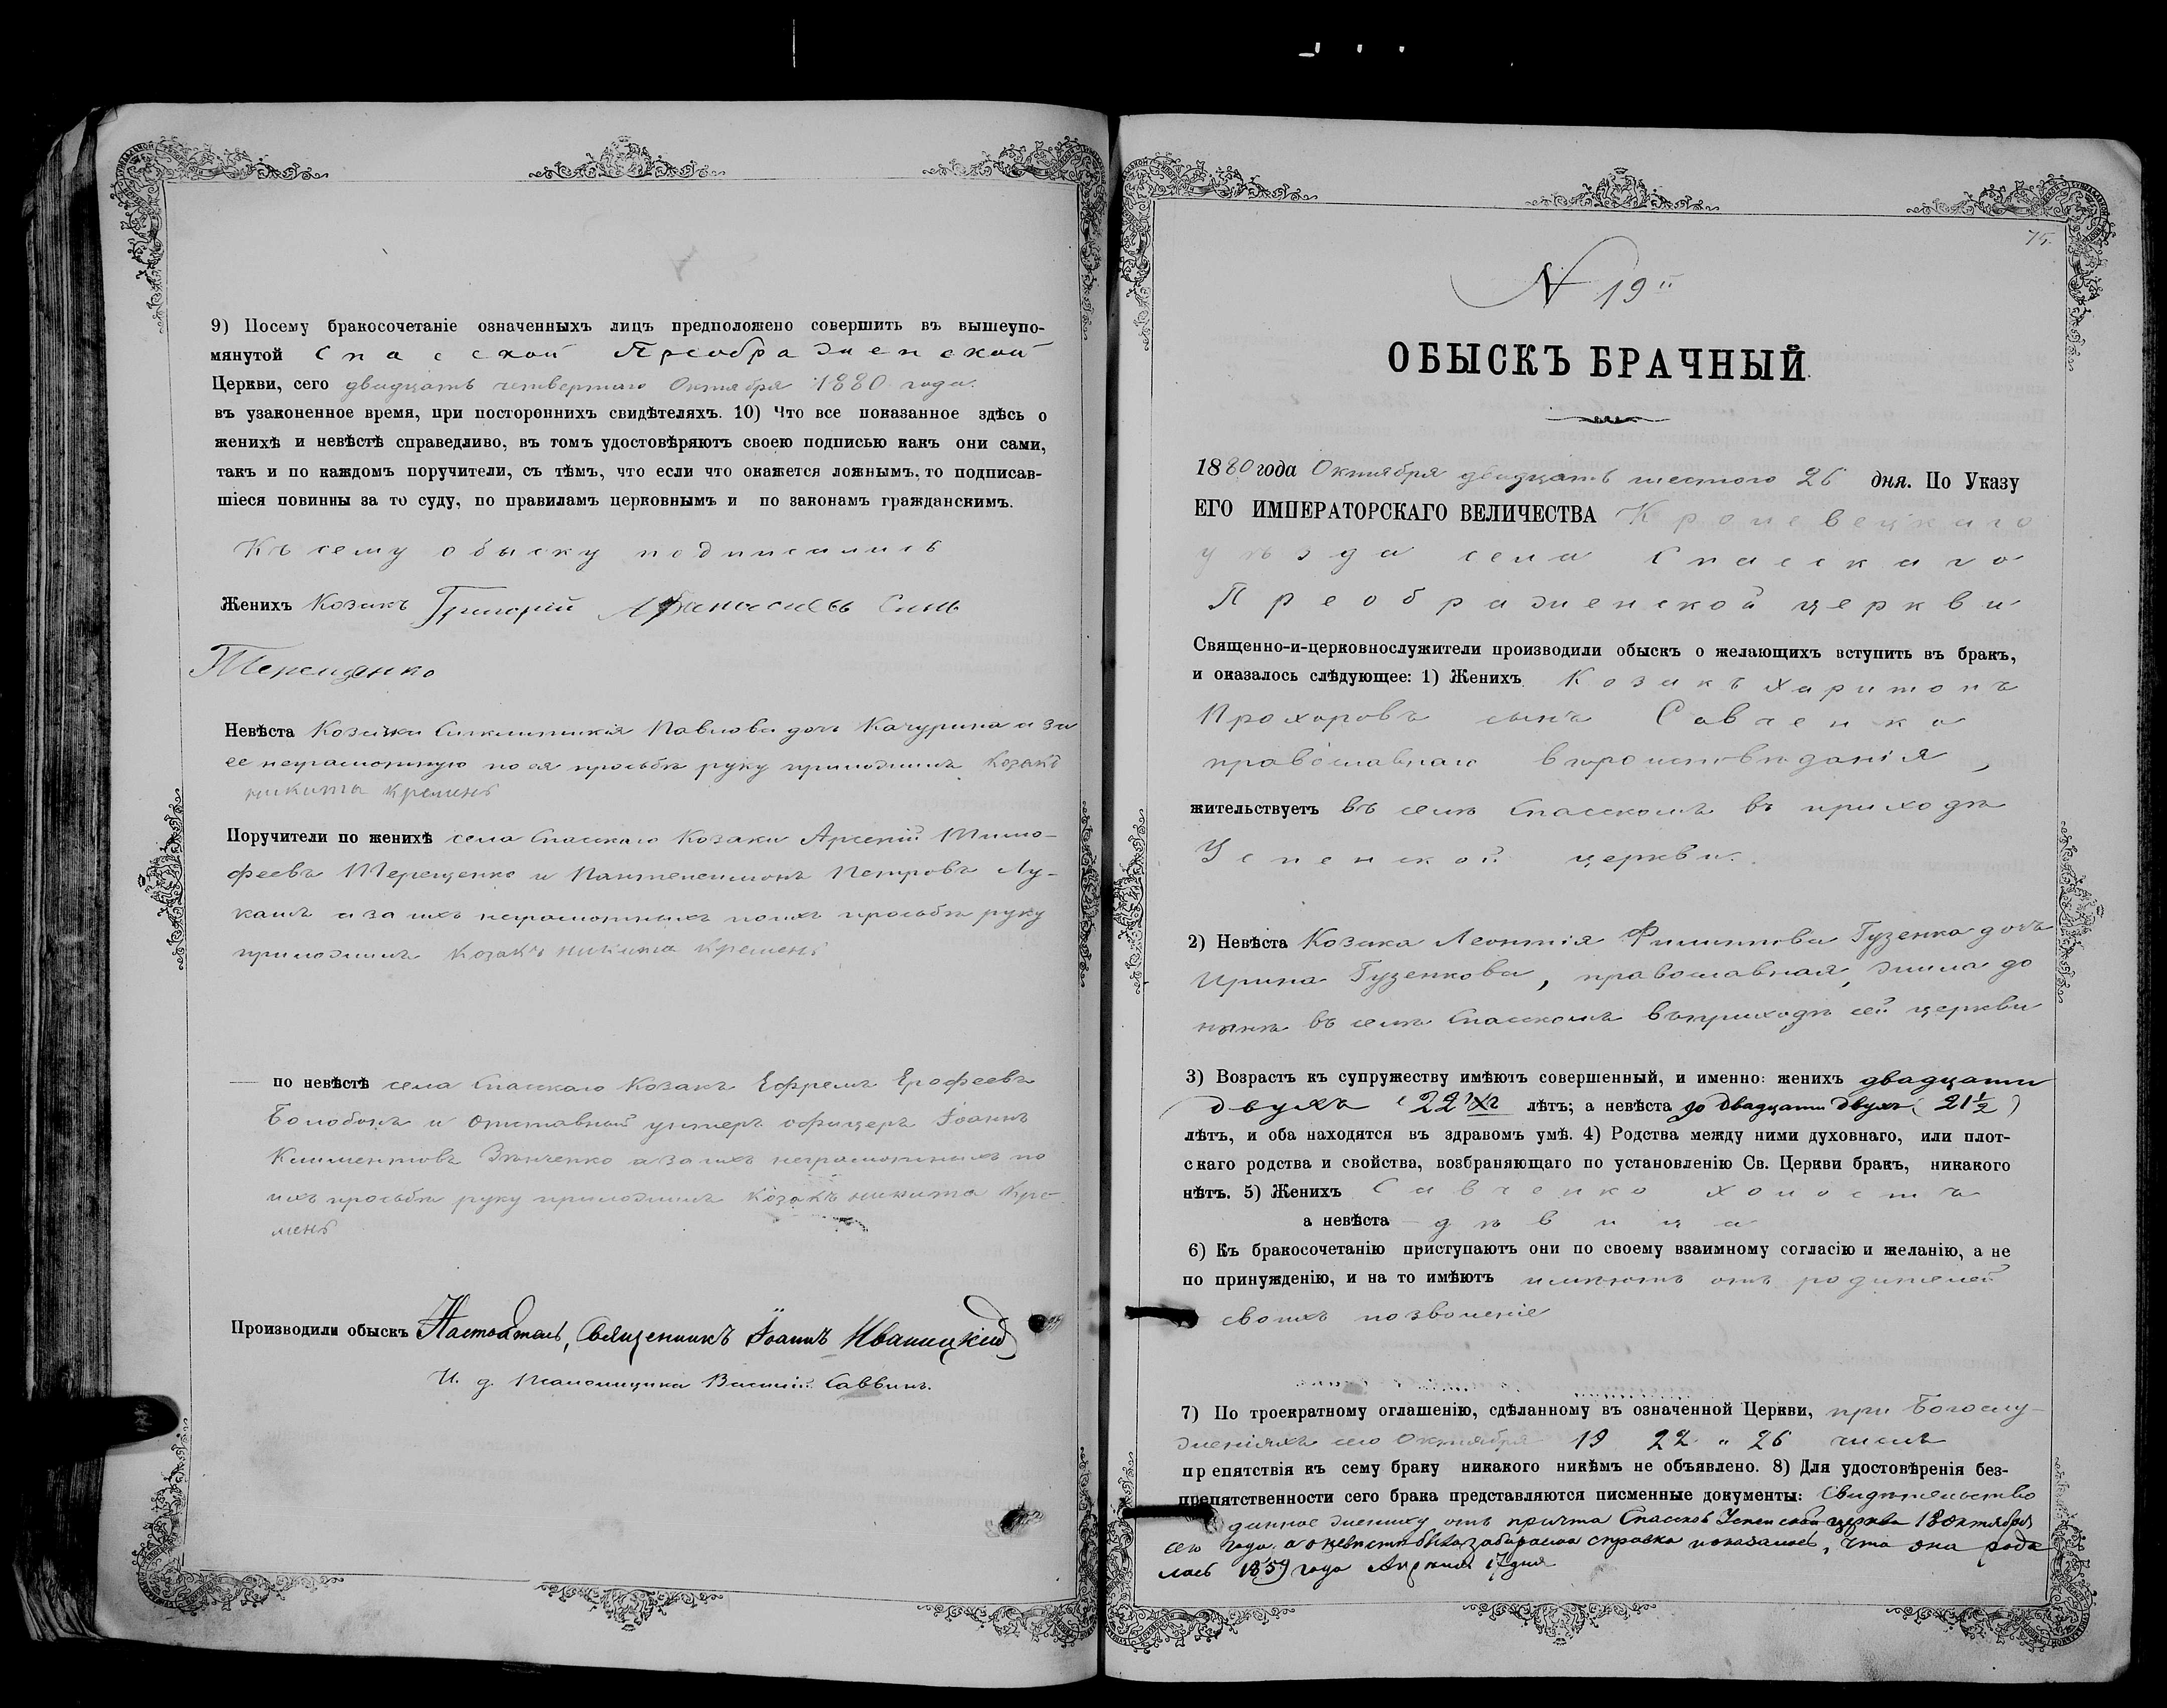 9) Посему бракосочетаніе означенныхъ лицъ предположено совершить въ вышеупо-
мянутой Спасской Преображенской
Церкви, сего двадцать четвертаго Октября 1880 года.
въ узаконенное время, при постороннихъ свидѣтеляхъ. 10) Что все показанное здѣсь о
женихѣ и невѣстѣ справедливо, въ томъ удостовѣряютъ своею подписью какъ они сами,
такъ и по каждомъ поручители, съ тѣмъ, что если что окажется ложнымъ, то подписав-
шіеся повинны за то суду, по правиламъ церковнымъ и по законамъ гражданскимъ.
Къ сему обыску подписались
Женихъ Козакъ Григорій Афанасіевъ Синъ
Терещенко
Невѣста Козачка Павлова дочь Качурина а за
ее неграмотную по ея прозьбѣ руку приложилъ козакъ
никита кремень
Поручители по женихѣ села Спасскаго Козаки Арсеній Тимо-
феевъ Терещенко и Пантелеимонъ Петровъ Лу-
кашъ а за ихъ неграмотныхъ по ихъ прозьбѣ руку
приложилъ козакъ никита кремень
по невѣстѣ села Спасскаго Козакъ Ефремъ Ерофеевъ
Болобонъ и отставный унтеръ офицеръ Іоаннъ
Климентовъ а за ихъ неграмотныхъ по
ихъ прозьбѣ руку приложилъ козакъ никита кре-
мень
Производили обыскъ Настоятель, Священникъ Іоаннъ Иваницкій
И. д. Псаломщика Василій Саввинъ.
75.
N 19
ОБЫСКЪ БРАЧНЫЙ.
1880 года Октября двадцать шестого 26 дня. По Указу
ЕГО ИМПЕРАТОРСКАГО ВЕЛИЧЕСТВА Кролевецкаго
уѣзда села Спасскаго
Преображенской церкви
Священно-и-церковнослужители производили обыскъ о желающихъ вступить въ бракъ,
и оказалось слѣдующее: 1) Женихъ Козакъ Харитонъ
Прохоровъ сынъ Савченко
православнаго вѣроисповѣданія,
жительствуетъ въ селѣ Спасскомъ въ приходѣ
Успенской церкви.
2) Невѣста Козака Леонтія Филиппова Гузенка дочь
Ирина Гузенкова, православная, жила до
нынѣ въ селѣ Спасскомъ въ приходѣ сей церкви
3) Возрастъ къ супружеству имѣютъ совершенный, и именно: женихъ двадцати
двухъ (22хъ лѣтъ; а невѣста до двадцати двухъ (21½)
лѣтъ, и оба находятся въ здравомъ умѣ. 4) Родства между ними духовнаго, или плот-
скаго родства и свойства, возбраняющаго по установленію Св. Церкви бракъ, никакого
нѣтъ. 5) Женихъ Савченко холостъ
а невѣста - дѣвица
6) Къ бракосочетанію приступаютъ они по своему взаимному согласію и желанію, а не
по принужденію, и на то имѣютъ имѣютъ отъ родителей
своихъ позволеніе
7) По троекратному оглашенію, сдѣланному въ означенной Церкви, при Богослу-
женіяхъ сего Октября 19 22 " 26 числъ
препятствія къ сему браку никакого никѣмъ не объявлено. 8) Для удостовѣренія без-
препятственности сего брака представляются писменные документы: Свидѣтельство
данное жениху отъ причта Спасской Успенской церкви 18 октября
сего года, а о невѣстѣ справка показалось, что она роди
лась 1859 года Апрѣля 17 дня